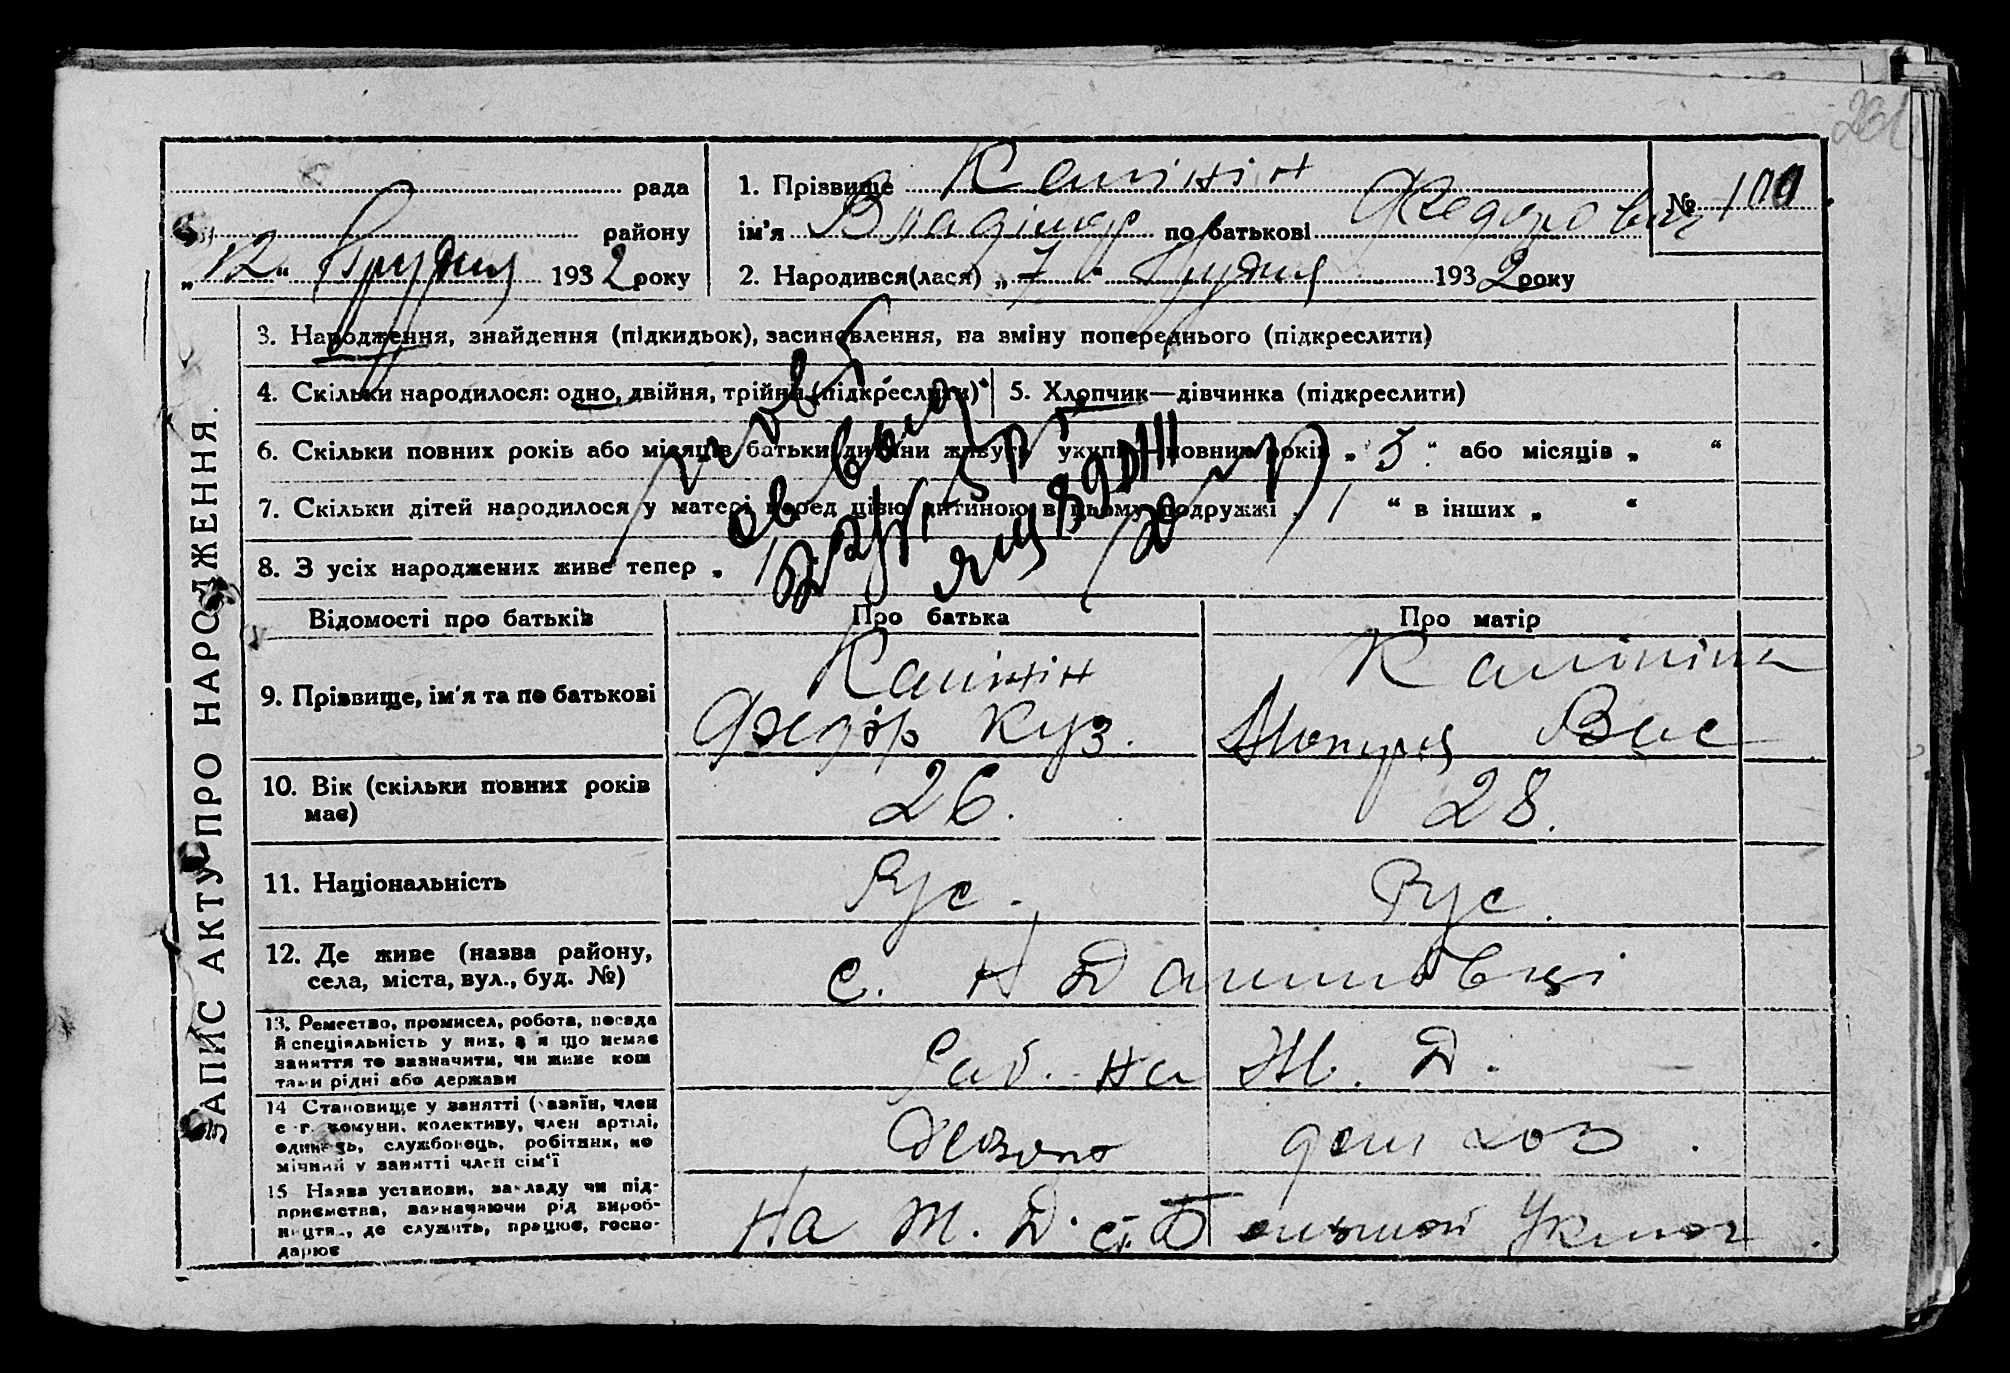 рада
району
„12“ Грудня 1932 року
1. Прізвище Калінін
ім'я Владімир по батькові Федорович
№ 100
2. Народився(лася) „7“ Грудня 1932 року
ЗАПИС АКТУ ПРО НАРОДЖЕННЯ.
3. Народження, знайдення (підкидьок), засиновлення, на зміну попереднього (підкреслити)
4. Скільки народилося: одно, двійня, трійня (підкреслити)
5. Хлопчик—дівчинка (підкреслити)
6. Скільки повних років або місяців батьки дитини живуть укупі повних років „5“ або місяців „ “
7. Скільки дітей народилося у матері перед цією дитиною в цьому подружжі „1“ в інших „ “
8. З усіх народжених живе тепер „1
Відомості про батьків
Про батька
Про матір
9. Прізвище, ім'я та по батькові
Калінін
Федор Куз.
Калініна
Вас
10. Вік (скільки повних років
має)
26.
28.
11. Національність
Рус.
Рус.
12. Де живе (назва району,
села, міста, вул., буд. №)
с. Н Даниловці
13. Ремество, промисел, робота, посада
й спеціяльність у них, а я що немає
заняття то зазначити, чи живе кош
тами рідні або держави
Раб. на Ж. Д.
14 Становище у занятті (хазяїн, член
с.-г. комуни, колективу, член артілі,
одинець, службовець, робітник, по
мічний у занятті член сім'ї
дом хоз.
15 Назва установи, закладу чи під-
приємства, зазначаючи рід вироб-
ництв., де служить, працює, госпо-
дарює
на Ж. Д. ст.